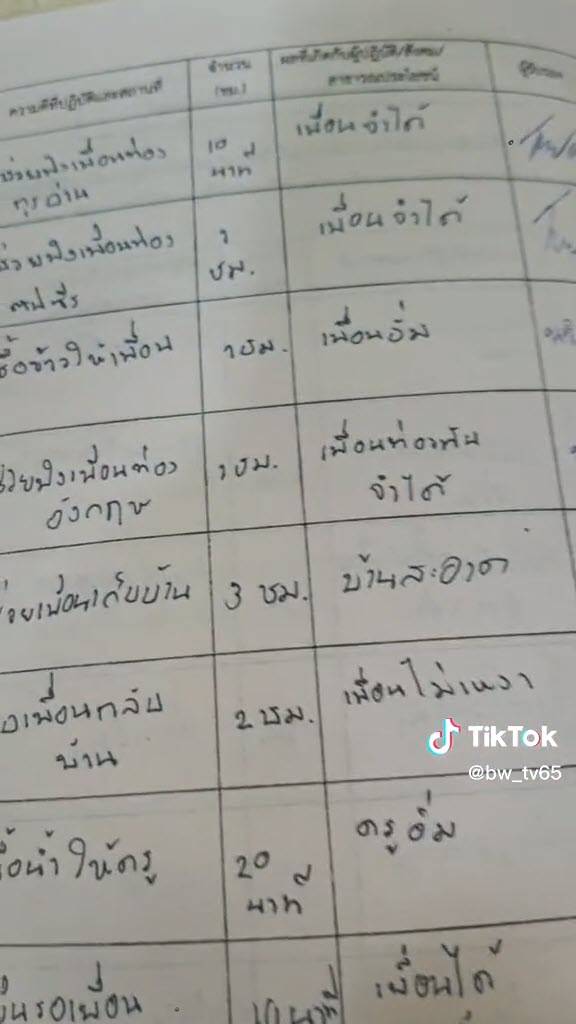 ความดีที่ปฏิบัติและสถานที่
จำนวน
(ชม.)
ผลที่เกิดกับผู้ปฏิบัติ/สังคม/
สาธารณประโยชน์
ช่วยฟังเพื่อนท่อง
กุรอ่าน
10
นาที
เพื่อนจำได้
ช่วยฟังเพื่อนท่อง
ตัฟซีร
1
ชม.
เพื่อนจำได้
ซื้อข้าวให้เพื่อน
1 ชม.
เพื่อนอิ่ม
ช่วยฟังเพื่อนท่อง
อังกฤษ
1 ชม.
เพื่อนท่องทัน
จำได้
ช่วยเพื่อนเก็บบ้าน
3 ชม.
บ้านสะอาด
รอเพื่อนกลับ
บ้าน
2 ชม.
เพื่อนไม่เหงา
ซื้อน้ำให้ครู
20
นาที
ครูอิ่ม
ยืนรอเพื่อน
10 นาที
เพื่อนได้
TikTok
@bw_tv65